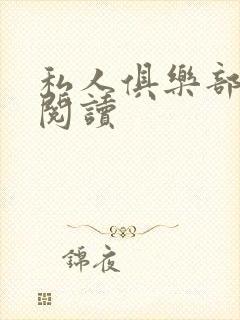 私人俱樂部
閱讀
錦夜